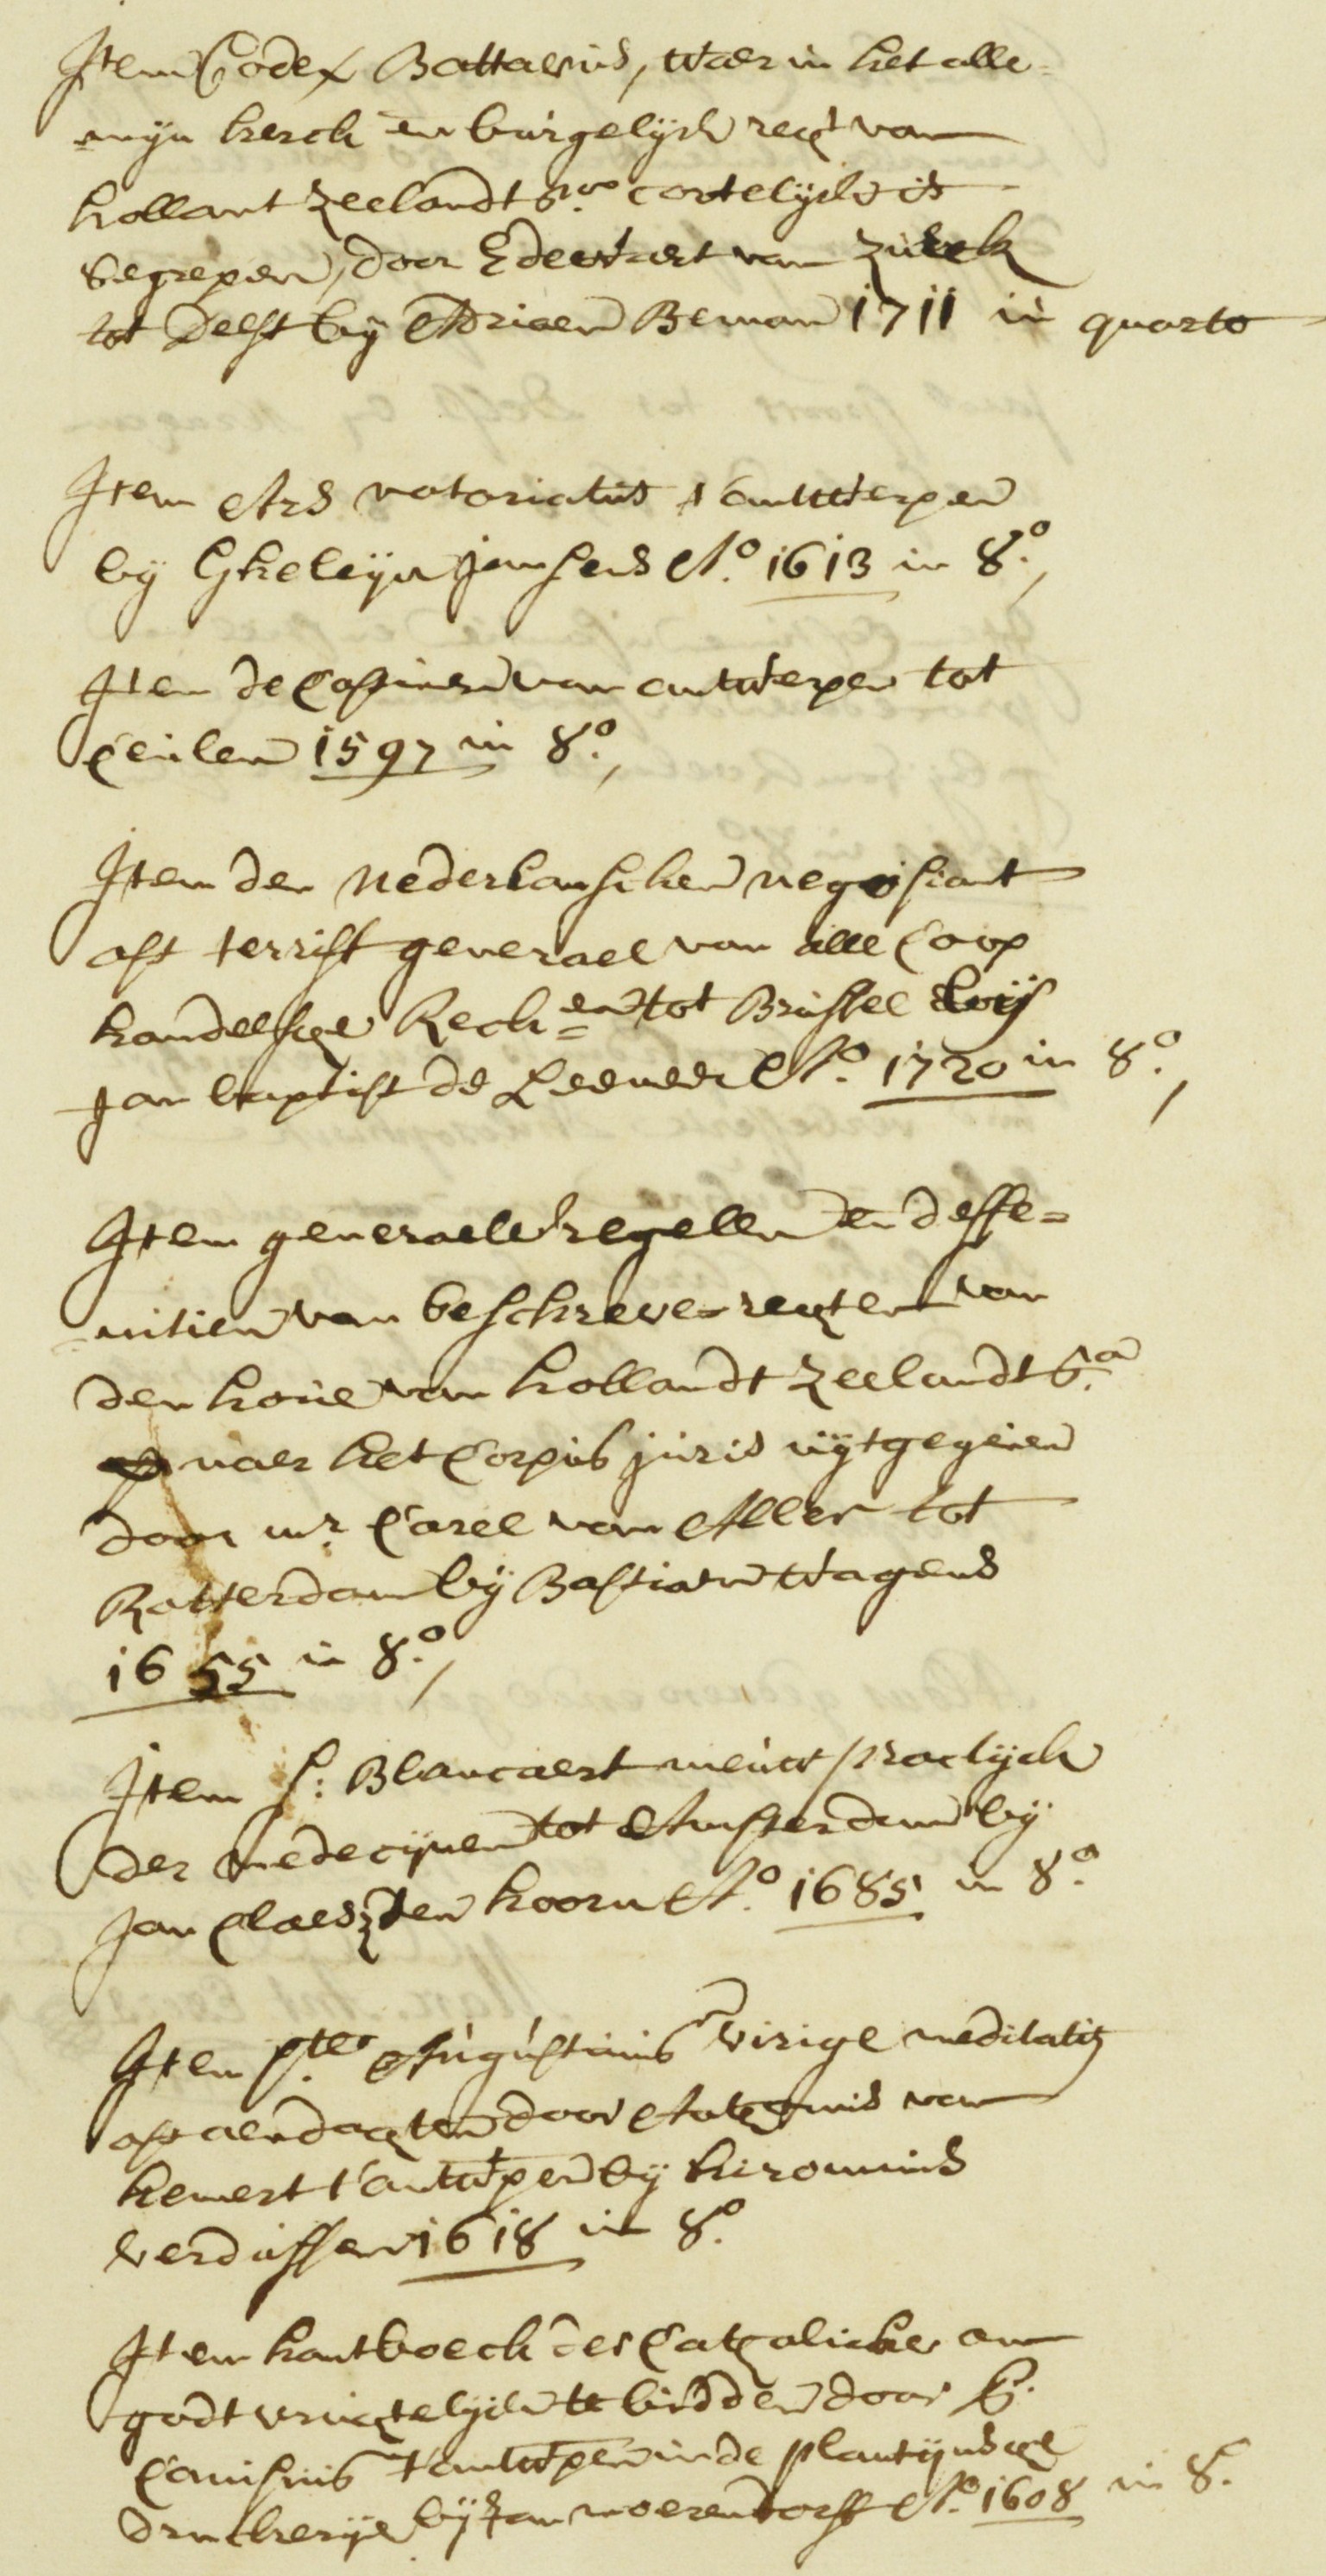 Item Codex Battavus, waer in het alle=
=mijn kerck en burgelijck recht van
hollant Zeelandt &.ca cortelijck is
begrepen, door Eduardt van Zurck
tot Delft bij Adriaen Beman 1711 in quarto
Item Ars notoriatus t'antwerpen
bij Gheleijn Janssens A.o 1613 in 8.o,
Item de Costumen van antwerpen tot
Ceulen 1597 in 8.o,
Item den nederlanschen negosiant
oft terrift generael van alle Coop
handelsche Rech=en tot Brussel bij
Jan baptist de Leeneer A.o 1720 in 8.o,
Item generaele regellen en deffe=
=nitien van beschreve rechten van
den hove van hollandt Zeelandt &.a
naer het Corpus juris uijtgegeven
door mr. Carel van Aller tot
Rotterdam bij Bastiaen Wagens
1655 in 8.o,
Item S: Blancaert nieuw practijck
der medecijnen tot Amsterdam bij
Jan Claesz ten hoorn A.o 1685 in 8.o
Item Augustinus virige meditatie
oft aendachten door Antonius van
hemert t'antwerpen bij hironimus
verdussen 1618 in 8.o
Item hantboeck der Catholicken om
godtvruchtelijck te bidden door
Canisius t'antwerpen in de plantijnsche
druckerije bij Jan moerendorff A.o 1608 in 8.o